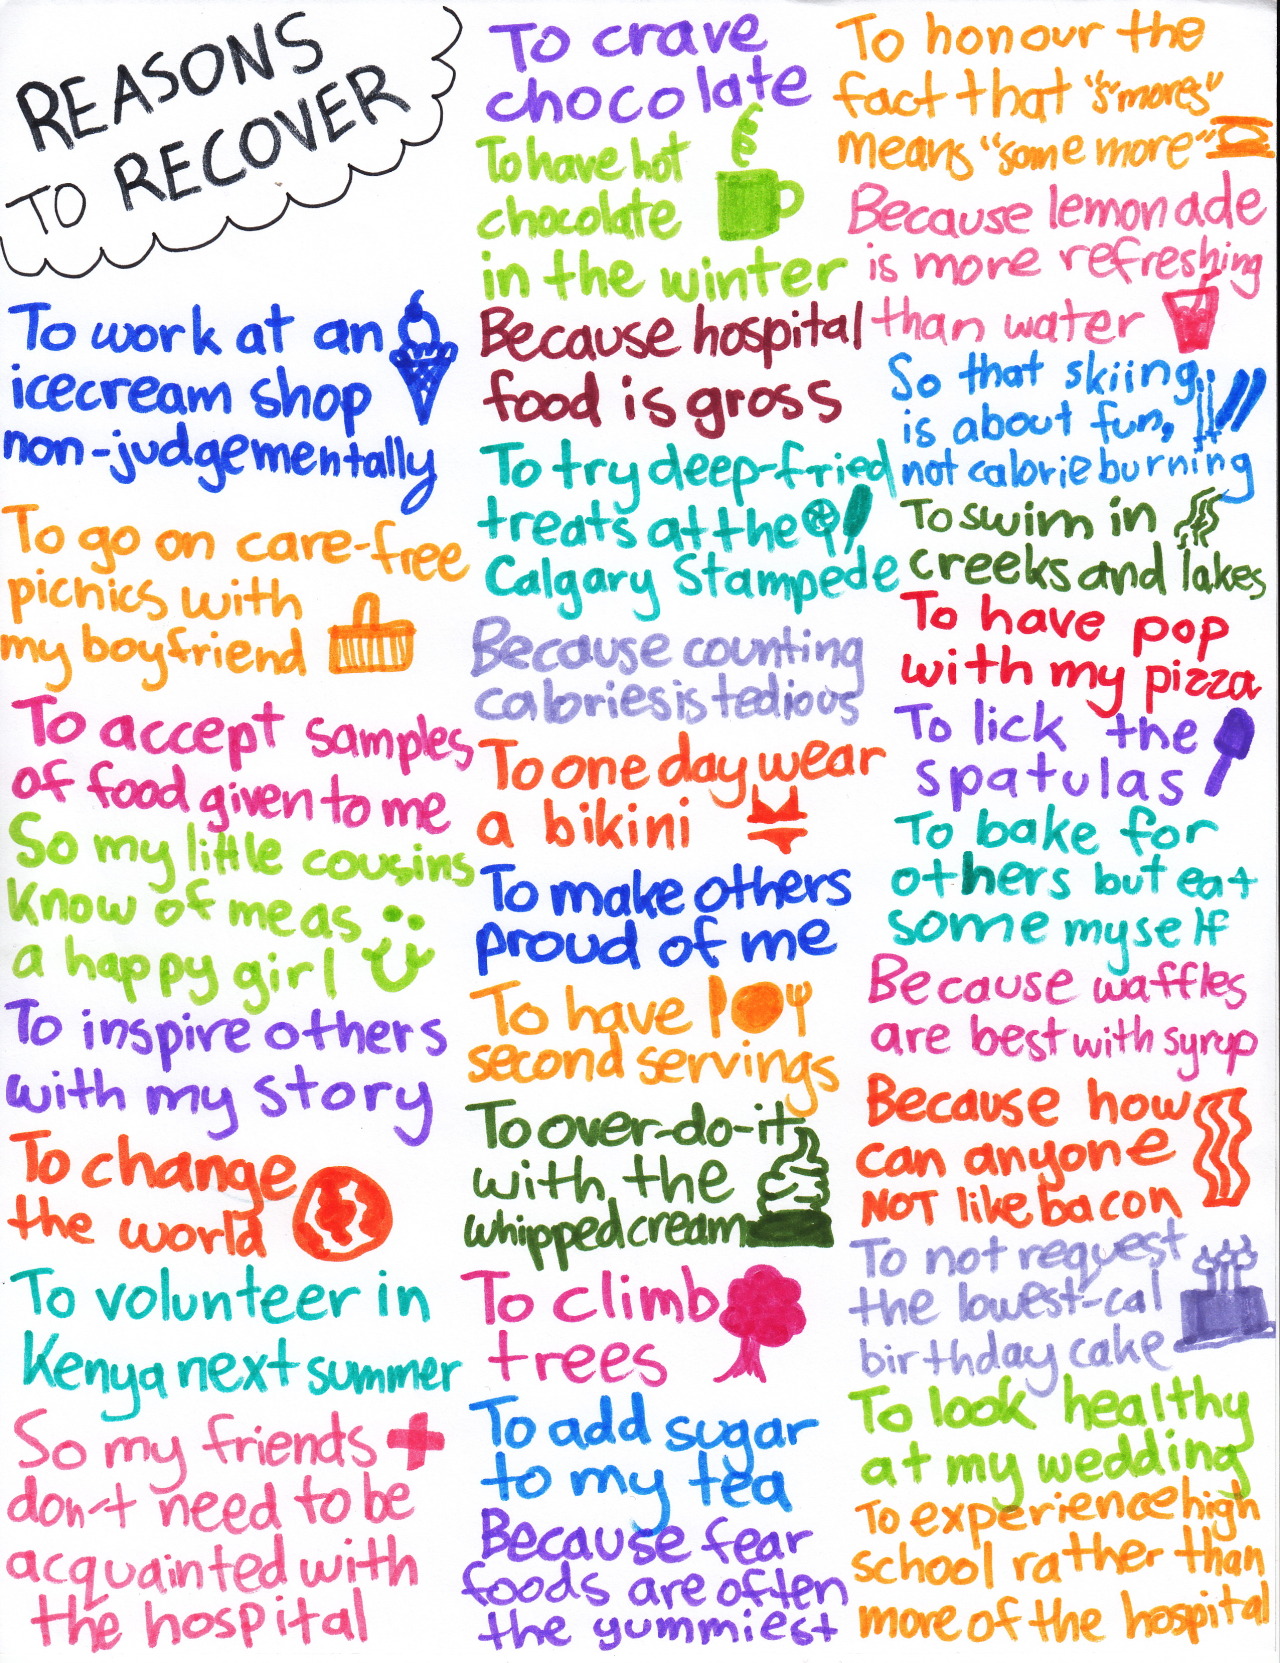 REASONS
TO RECOVER
To work at an
icecream shop
non-judgementally
To go on care-free
picnics with
my boyfriend
To accept samples
of food given to me
So my little cousins
know of me as
a happy girl
To inspire others
with my story
To change
the world
To volunteer in
Kenya next summer
So my friends
don't need to be
acquainted with
the hospital
To crave
chocolate
To have hot
chocolate
in the winter
Because hospital
food is gross
To try deep-fried
treats at the
Calgary Stampede
Because counting
calories is tedious
To one day wear
a bikini
To make others
proud of me
To have
second servings
To over-do-it
with the
whipped cream
To climb
trees
To add sugar
to my tea
Because fear
foods are often
the yummiest
To honour the
fact that "s'mores"
means "some more"
Because lemonade
is more refreshing
than water
So that skiing
is about fun,
not calorie burning
To swim in
creeks and lakes
To have pop
with my pizza
To lick the
spatulas
To bake for
others but eat
some myself
Because waffles
are best with syrup
Because how
can anyone
NOT like bacon
To not request
the lowest-cal
birthday cake
To look healthy
at my wedding
To experience high
school rather than
more of the hospital